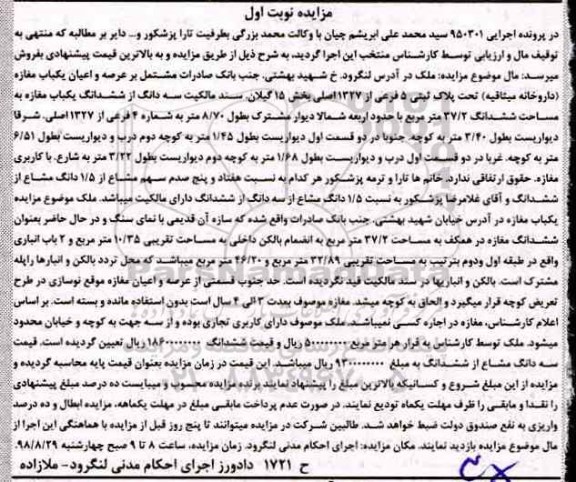 مزایده نوبت اول
در پرونده اجرایی ۹۵۰۳۰۱ سید محمد علی ابریشم چیان با وکالت محمد بزرگی بطرفیت تارا پزشکور و... دایر بر مطالبه که منتهی به
توقیف مال و ارزیابی توسط کارشناس منتخب این اجرا گردید، به شرح ذیل از طریق مزایده و به بالاترین قیمت پیشنهادی بفروش
میرسد: مال موضوع مزایده: ملک در آدرس لنگرود. خ شهید بهشتی. جنب بانک صادرات مشتمل بر عرصه و اعیان یکباب مغازه
(داروخانه میثاقیه) تحت پلاک ثبتی ۵ فرعی از ۱۳۲۷ اصلی بخش ۱۵ گیلان. سند مالکیت سه دانگ از ششدانگ یکباب مغازه به
مساحت ششدانگ ۳۷/۲ متر مربع با حدود اربعه شمالا دیوار مشترک بطول ۸/۷۰ متر به شماره ۴ فرعی از ۱۳۲۷ اصلی. شرقا
دیواریست بطول ۳/۴۰ متر به کوچه. جنوبا در دو قسمت اول دیواریست بطول ۱/۴۵ متر به کوچه دوم درب و دیواریست بطول ۶/۵۱
متر به کوچه. غربا در دو قسمت اول درب و دیواریست بطول ۱/۶۸ متر به کوچه دوم دیواریست بطول ۳/۲۲ متر به شارع. با کاربری
مغازه. حقوق ارتفاقی ندارد. خانم ها تارا و ترمه پزشکور هر کدام به نسبت هفتاد و پنج صدم سهم مشاع از ۱/۵ دانگ مشاع از
ششدانگ و آقای غلامرضا پزشکور به نسبت ۱/۵ دانگ مشاع از سه دانگ از ششدانگ دارای مالکیت میباشد. ملک موضوع مزایده
یکباب مغازه در آدرس خیابان شهید بهشتی. جنب بانک صادرات واقع شده که سازه آن قدیمی با نمای سنگ و در حال حاضر بعنوان
ششدانگ مغازه در همکف به مساحت ۳۷/۲ متر مربع به انضمام بالکن داخلی به مساحت تقریبی ۱۰/۳۵ متر مربع و ۲ باب انباری
واقع در طبقه اول ودوم بترتیب به مساحت تقریبی ۳۲/۸۹ متر مربع و ۴۶/۲۰ متر مربع میباشد که محل تردد بالکن و انبارها راپله
مشترک است. بالکن و انباریها در سند مالکیت قید نگردیده است. حد جنوب قسمتی از عرصه و اعیان مغازه موقع نوسازی در طرح
تعریض کوچه قرار میگیرد و الحاق به کوچه میشد. مغازه موصوف بمدت ۳ الی ۴ سال است بدون استفاده مانده و بسته است. بر اساس
اعلام کارشناس، مغازه در اجاره کسی نمیباشد. ملک موصوف دارای کاربری تجاری بوده و از سه جهت به کوچه و خیابان محدود
میشود. ملک توسط کارشناس به قرار هر متر مربع ریال و قیمت ششدانگ ریال تعیین گردیده است. قیمت
سه دانگ مشاع از ششدانگ به مبلغ ریال میباشد. این قیمت در زمان مزایده بعنوان قیمت پایه محاسبه گردیده و
مزایده از این مبلغ شروع و کسانیکه بالاترین مبلغ را پیشنهاد نمایند برنده مزایده محسوب و میبایست ده درصد مبلغ پیشنهادی
را نقدا و مابقی را ظرف مهلت یکماه تودیع نمایند. در صورت عدم پرداخت مابقی مبلغ در مهلت یکماهه. مزایده ابطال و ده درصد
واریزی به نفع صندوق دولت ضبط خواهد شد. طالبین شرکت در مزایده میتوانند تا پنج روز قبل از مزایده با هماهنگی این اجرا از
مال موضوع مزایده بازدید نمایند. مکان مزایده: اجرای احکام مدنی لنگرود. زمان مزایده، ساعت ۸ تا ۹ صبح چهارشنبه ۹۸/۸/۲۹.
ح ۱۷۲۱ دادورز اجرای احکام مدنی لنگرود- ملازاده